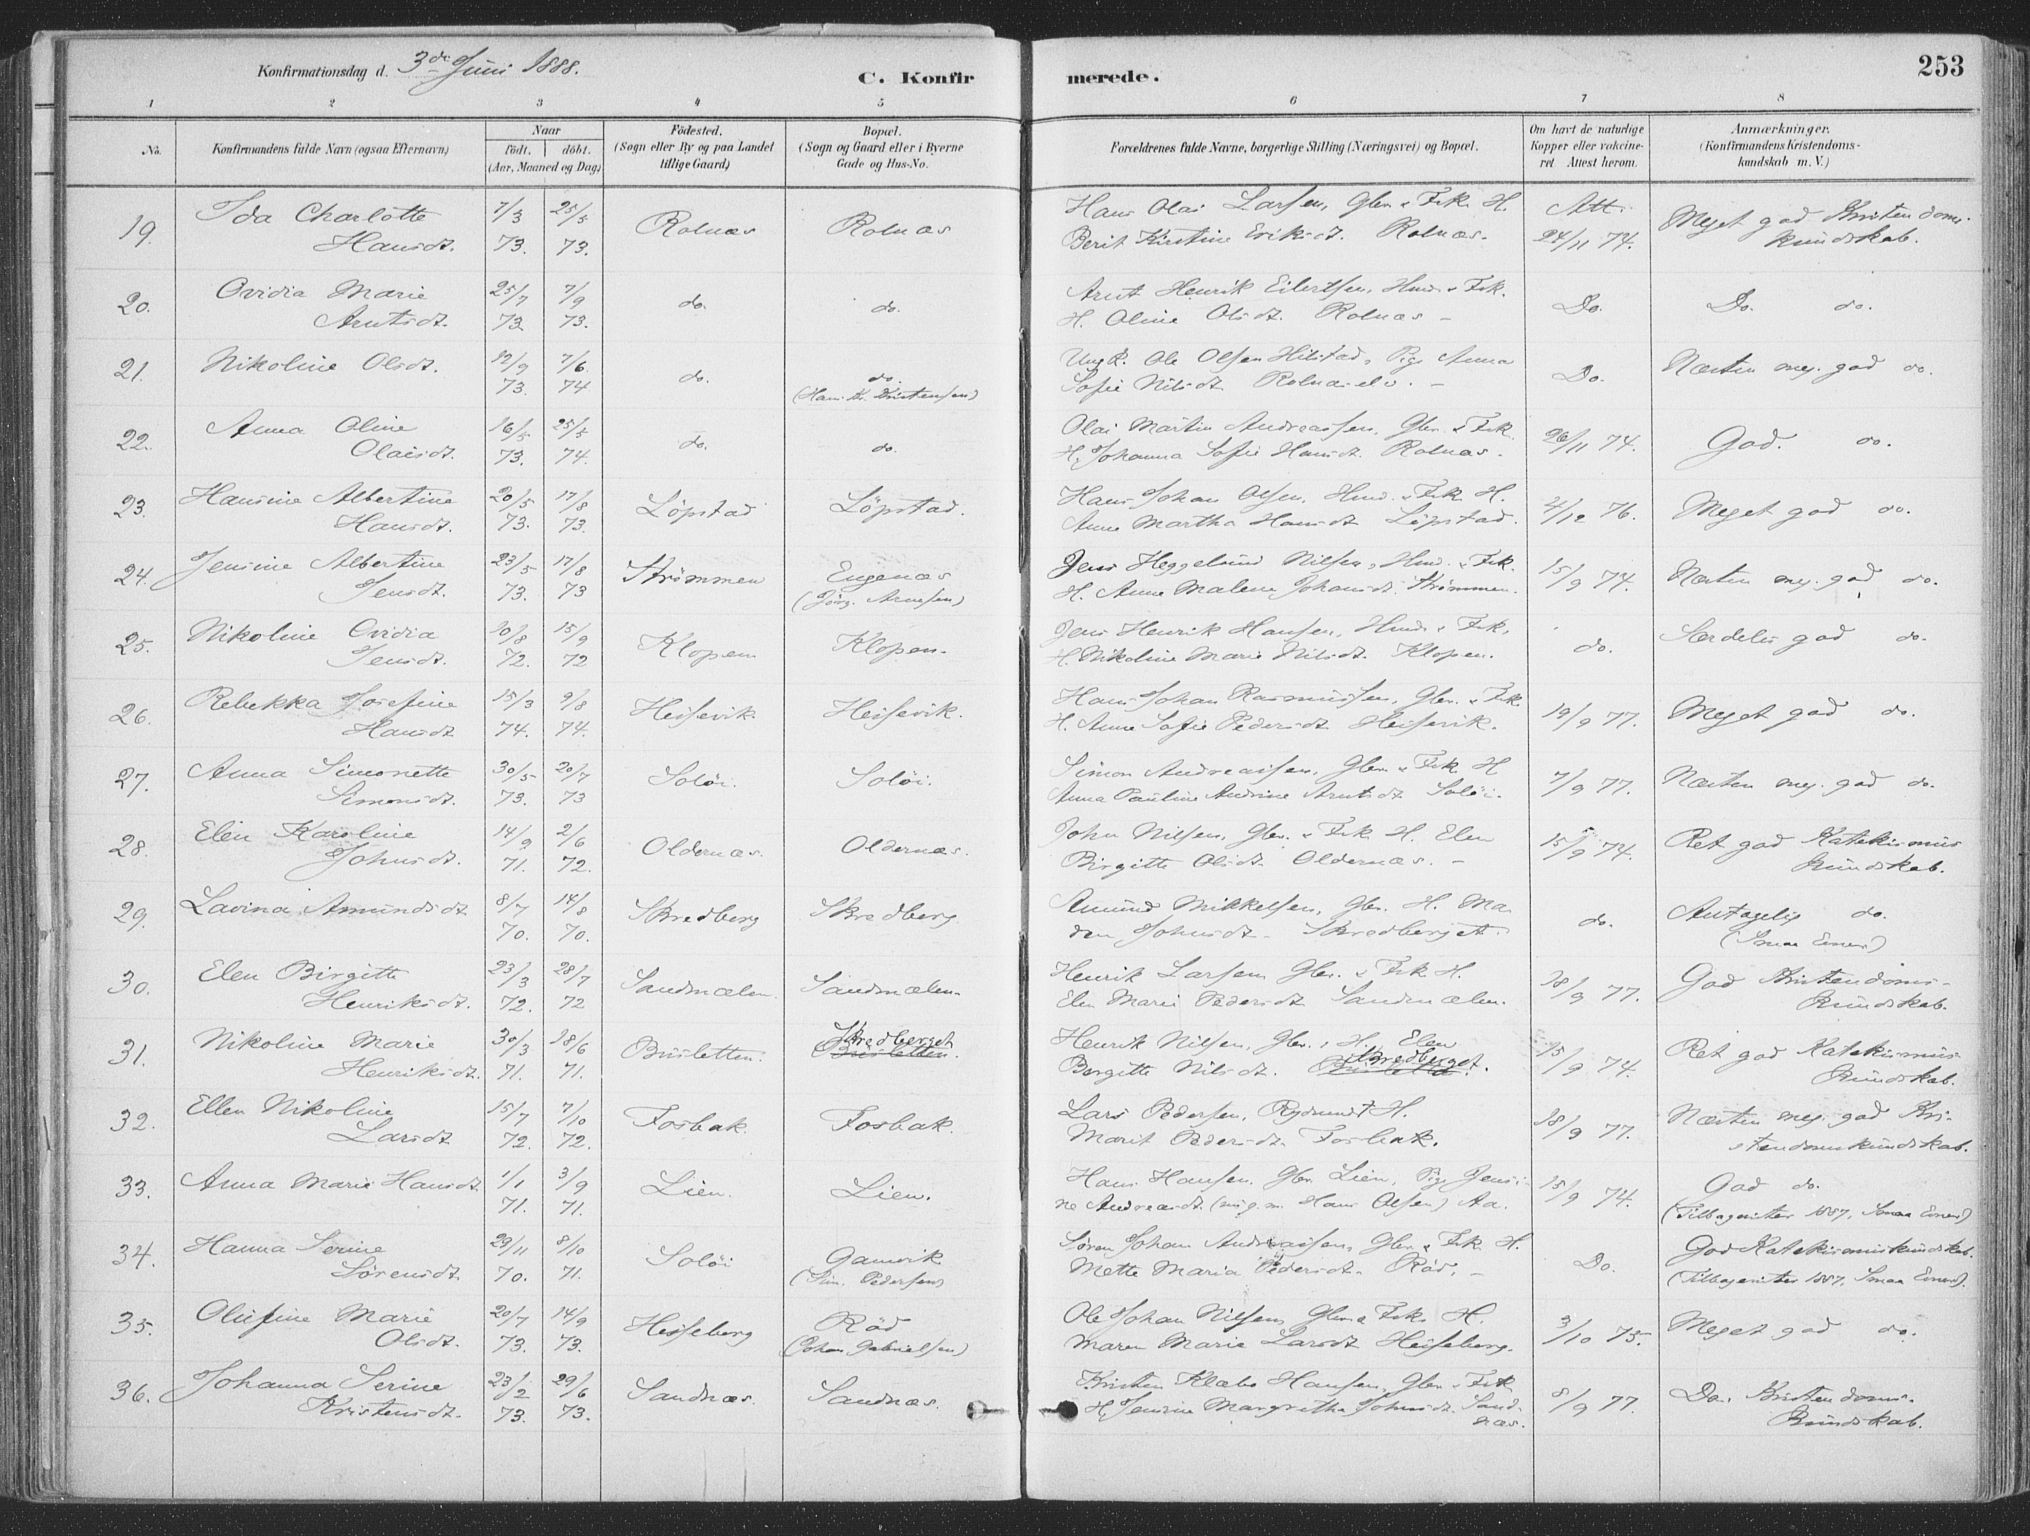 Konfirmationsdag d. 3de Juni 1888.
C. Konfirmerede.
253
1 2 3 4 5 6 7 8
No. Konfirmandens fulde Navn (ogsaa Efternavn) Naar födt. döbt. (Aar, Maaned og Dag) Födested. (Sogn eller By og paa Landet tillige Gaard) Bopæl. (Sogn og Gaard eller i Byerne Gade og Hus-No. Forældrenes fulde Navne, borgerlige Stilling (Næringsvei) og Bopæl. Om havt de naturlige Kopper eller vakcineret Attest herom. Anmærkninger. (Konfirmandens Kristendomskundskab m. V.)
19. Ida Charlotte Hansdt. 7/3 73. 25/5 73. Rolnæs Rolnæs Hans Olai Larsen, Gbr. & Fsk. H. Berit Kirstine Eriksdt. Rolnæs. Att. 24/11 74. Meget god Kristendomskundskab.
20. Ovidia Marie Arntsdt. 25/7 73 7/9 73. do. do. Arnt Henrik Eilertsen, Hmd. & Fsk. H. Oline Olsdt. Rolnæs – Do. Do. do.
21. Nikoline Olsdt. 12/9 73. 7/6 74 do. do. (Hans Kr. Kristensen) Ungk. Ole Olsen Hilstad, Pig. Anna Sofie Nilsdt. – Do. Næsten meg. god do.
22. Anna Oline Olaisdt. 16/5 73. 25/5 74. do. do. Olai Martin Andreassen, Gbr. & Fsk. H. Johanna Sofie Hansdt. Rolnæs. 26/11 74. God. do.
23. Hansine Albertine Hansdt. 20/5 73. 17/8 73. Löpstad Löpstad. Hans Johan Olsen, Hmd. & Fsk. H. Anne Martha Hansdt Löpstad. 4/12 76. Meget god do.
24. Jensine Albertine Jensdt. 23/5 73. 17/8 73 Strömmen Engenæs (Jörg. Arnesen) Jens Heggelund Nilsen, Hmd. & Fsk. H. Anne Malene Johansdt. Strömmen. 15/9 74. Næsten meg. god do.
25. Nikoline Ovidia Jensdt. 10/8 72. 15/9 72 Klopen Klopen. Jens Henrik Hansen, Hmd. & Fsk. H. Nikoline Marie Nilsdt. Klopen. do. Særdeles god do.
26. Rebekka Josefine Hansdt 15/3 74. 9/8 74. Heissevik Heissevik. Hans Johan Rasmussen, Gbr. & Fsk. H. Anne Sofie Pedersdt Heissevik. 19/9 77. Meget god do.
27. Anna Simonette Simonsdt. 30/5 73. 20/7 73 Solöi. Solöi. Simon Andreassen, Gbr. & Fsk H Anna Pauline Andrine Arntsdt Solöi. 7/9 77. Næsten meg. god do.
28. Elen Karoline Johnsdt. 14/9 71. 2/6 72. Oldernæs. Oldernæs. John Nilsen, Gbr. & Fsk. H. Elen Birgitte Olsdt Oldernæs. – 15/9 74. Ret god Katekismuskundskab.
29. Lavina Amundsdt 8/7 70. 14/8 70. Skredberg Skredberg Amund Mikkelsen, Gbr. H. Maden Johnsdt. Skredberget. do. Antagelig do. (Smaa Evner)
30. Elen Birgitte Henriksdt. 23/3 72. 28/7 72 Sandmælen. Sandmælen. Henrik Larsen, Gbr. & Fsk. H. Elen Marie Pedersdt Sandmælen. 18/9 77. God Kristendomskundskab.
31. Nikoline Marie Henriksdt. 30/3 71. 18/6 71. Busletten. Skredberget Busletten. Henrik Nilsen, Gbr., H. Elen Birgitte Nilsdt. Skredberget. Busletten. 15/9 74. Ret god Katekismuskundskab.
32. Ellen Nikoline Larsdt 15/7 72. 7/10 72. Fosbak. Fosbak. Lars Pedersen, H. Marit Pedersdt Fosbak. 18/9 77. Næsten meg. god Kristendomskundskab.
33. Anna Marie Hansdt 1/1 71. 3/9 71. Lien. Lien. Hans Hansen, Gbr. Lien, Pig. Jensine Andreasdt. (nu g. m. Hans Olsen) Aa. 15/9 74. God do. (Tilbagevister 1887, Smaa Evner)
34. Hanna Serine Sörensdt. 29/11 70. 8/10 71. Solöi Gamvik (Sim. Pedersen) Sören Johan Andreassen, Gbr. & Fsk. H. Mette Maria Pedersdt. Röd. – Do. God Katekismuskundskab. (Tilbagevister 1887, Smaa Evner).
35. Olufine Marie Olsdt. 20/7 73. 14/9 73. Heisseberg Röd (Johan Gabrielsen) Ole Johan Nilsen, Gbr. & Fsk. H. Maren Marie Larsdt Heisseberg. 3/10 75. Meget god do.
36. Johanna Serine Kristensdt. 23/2 73. 29/6 73. Sandnæs. Sandnæs. Kristen Klæbo Hansen, Gbr. & Fsk H. Jensine Margrethe Johnsdt. Sandnæs. 8/9 77. Do. Kristendomskundskab.